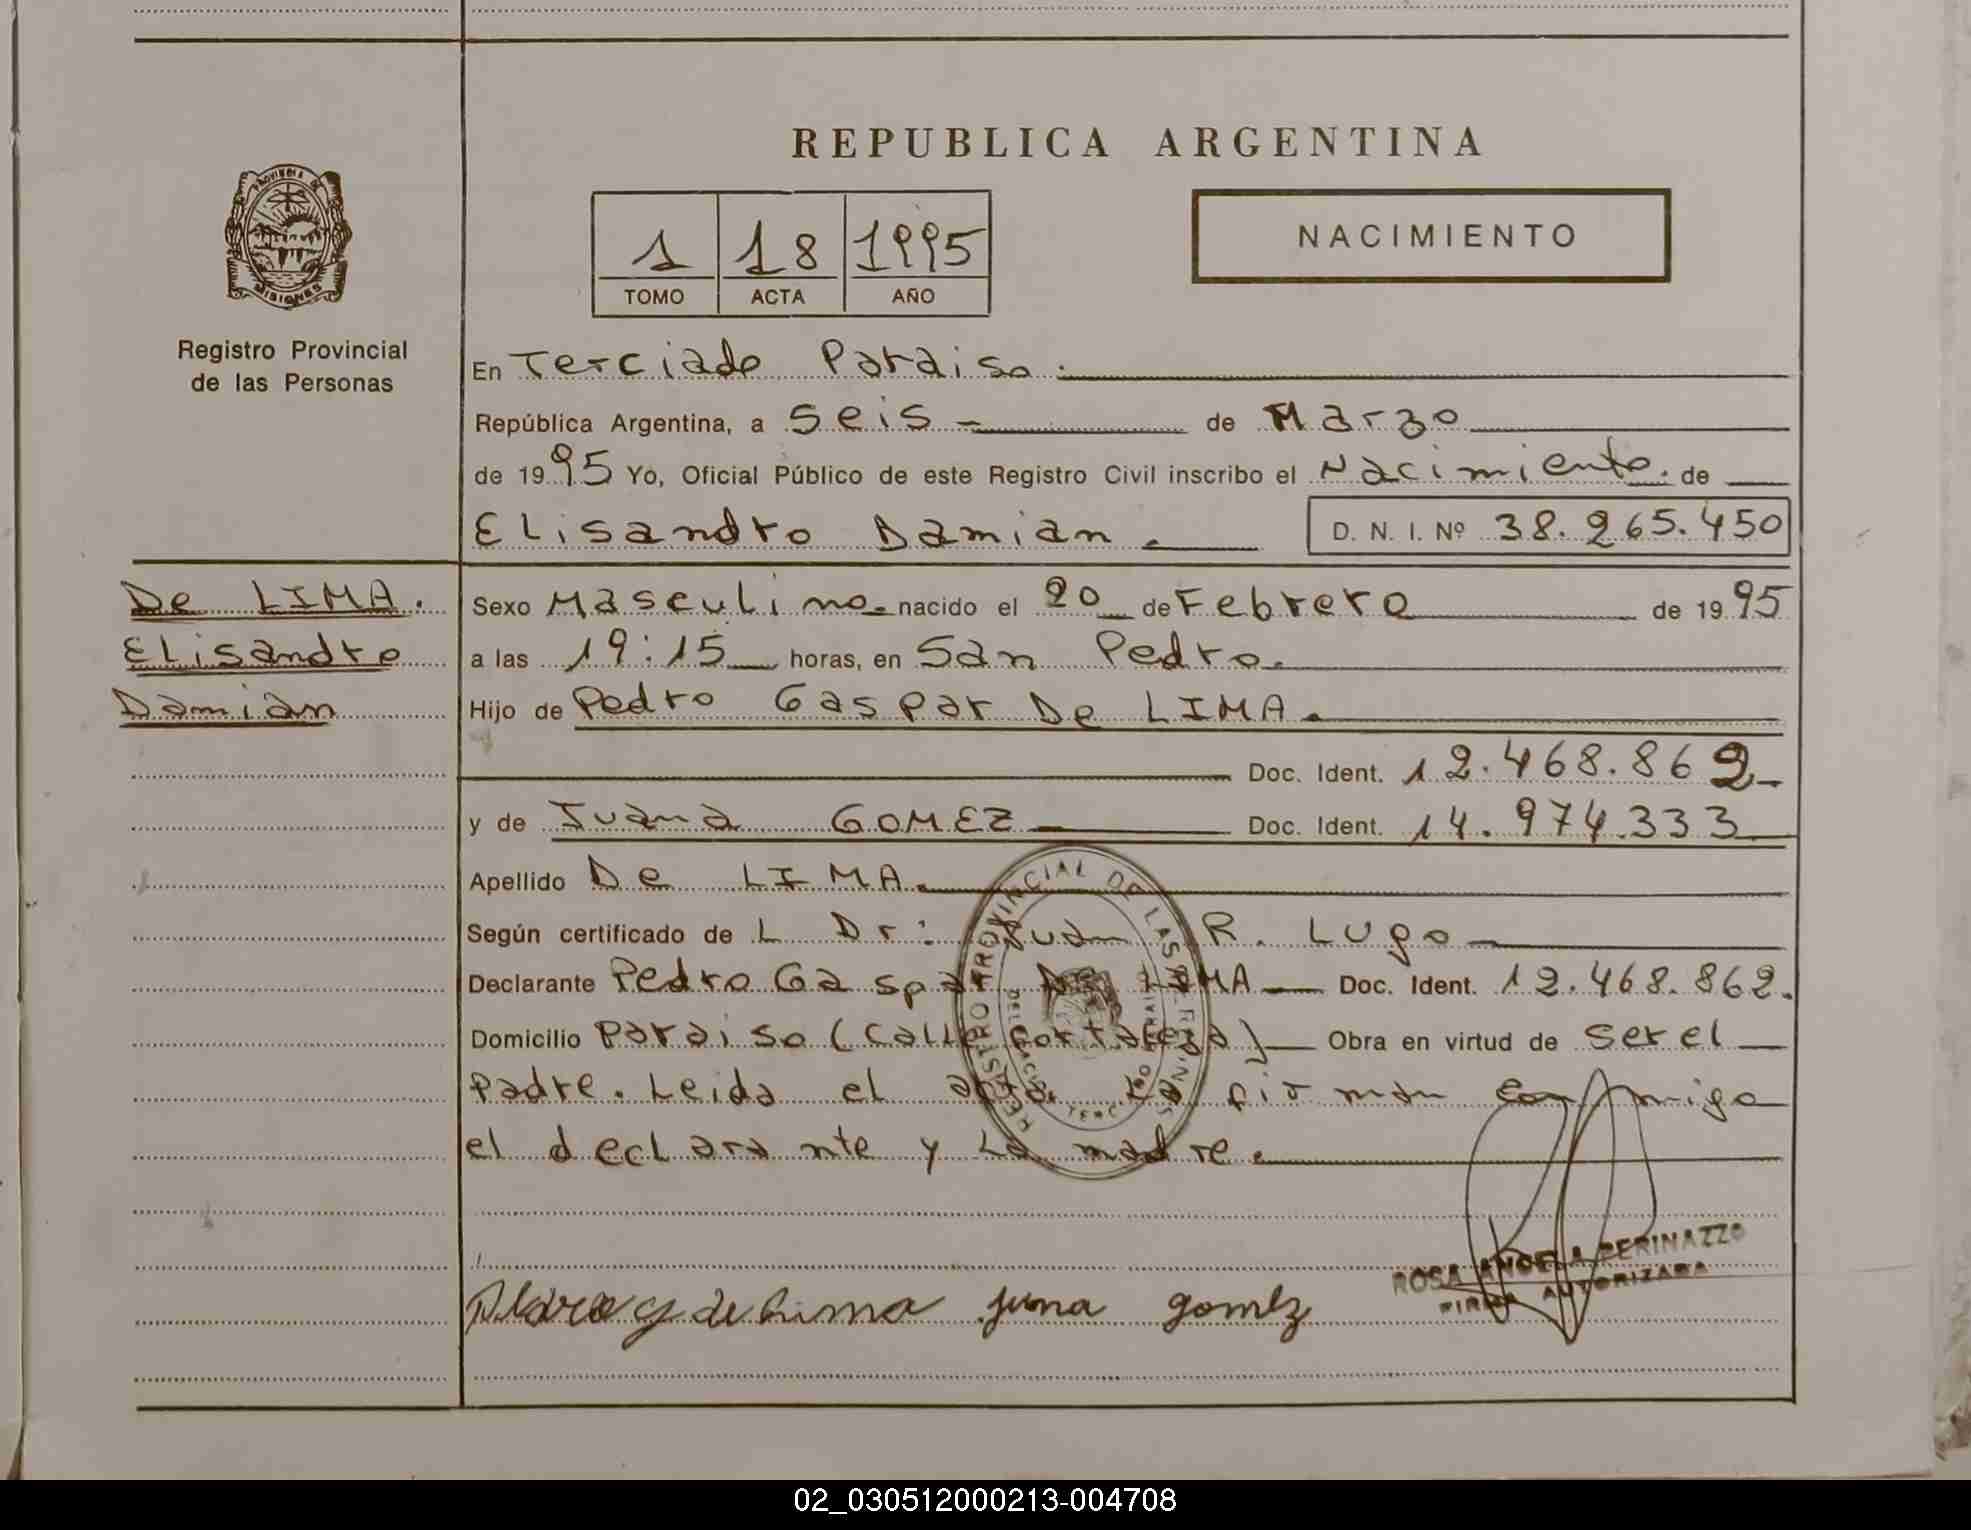 REPUBLICA ARGENTINA
PROVINCIA DE
MISIONES
Registro Provincial
de las Personas
1 18 1995
TOMO ACTA AÑO
NACIMIENTO
En Terciado Paraiso.
República Argentina, a seis de Marzo
de 1995 Yo, Oficial Público de este Registro Civil inscribo el Nacimiento. de
Elisandro Damian. D. N. I. Nº 38.265.450
De LIMA.
Elisandro
Damian
Sexo Masculino. nacido el 20 de Febrero de 1995
a las 19:15 horas, en San Pedro.
Hijo de Pedro Gaspar De LIMA.
Doc. Ident. 12.468.862
y de Juana GOMEZ Doc. Ident. 14.974.333
Apellido De LIMA.
Según certificado de L Dr: Juan R. Lugo
Declarante Pedro Gaspar De LIMA Doc. Ident. 12.468.862.
Domicilio Paraiso (Calle Fortaleza) Obra en virtud de ser el
padre. Leida el acta. La firman conmigo
el declarante y La madre.
REGISTRO PROVINCIAL DE LAS PERSONAS
ROSA ANGELA PERINAZZO
FIRMA AUTORIZADA
de Lima juna gomez
02_030512000213-004708